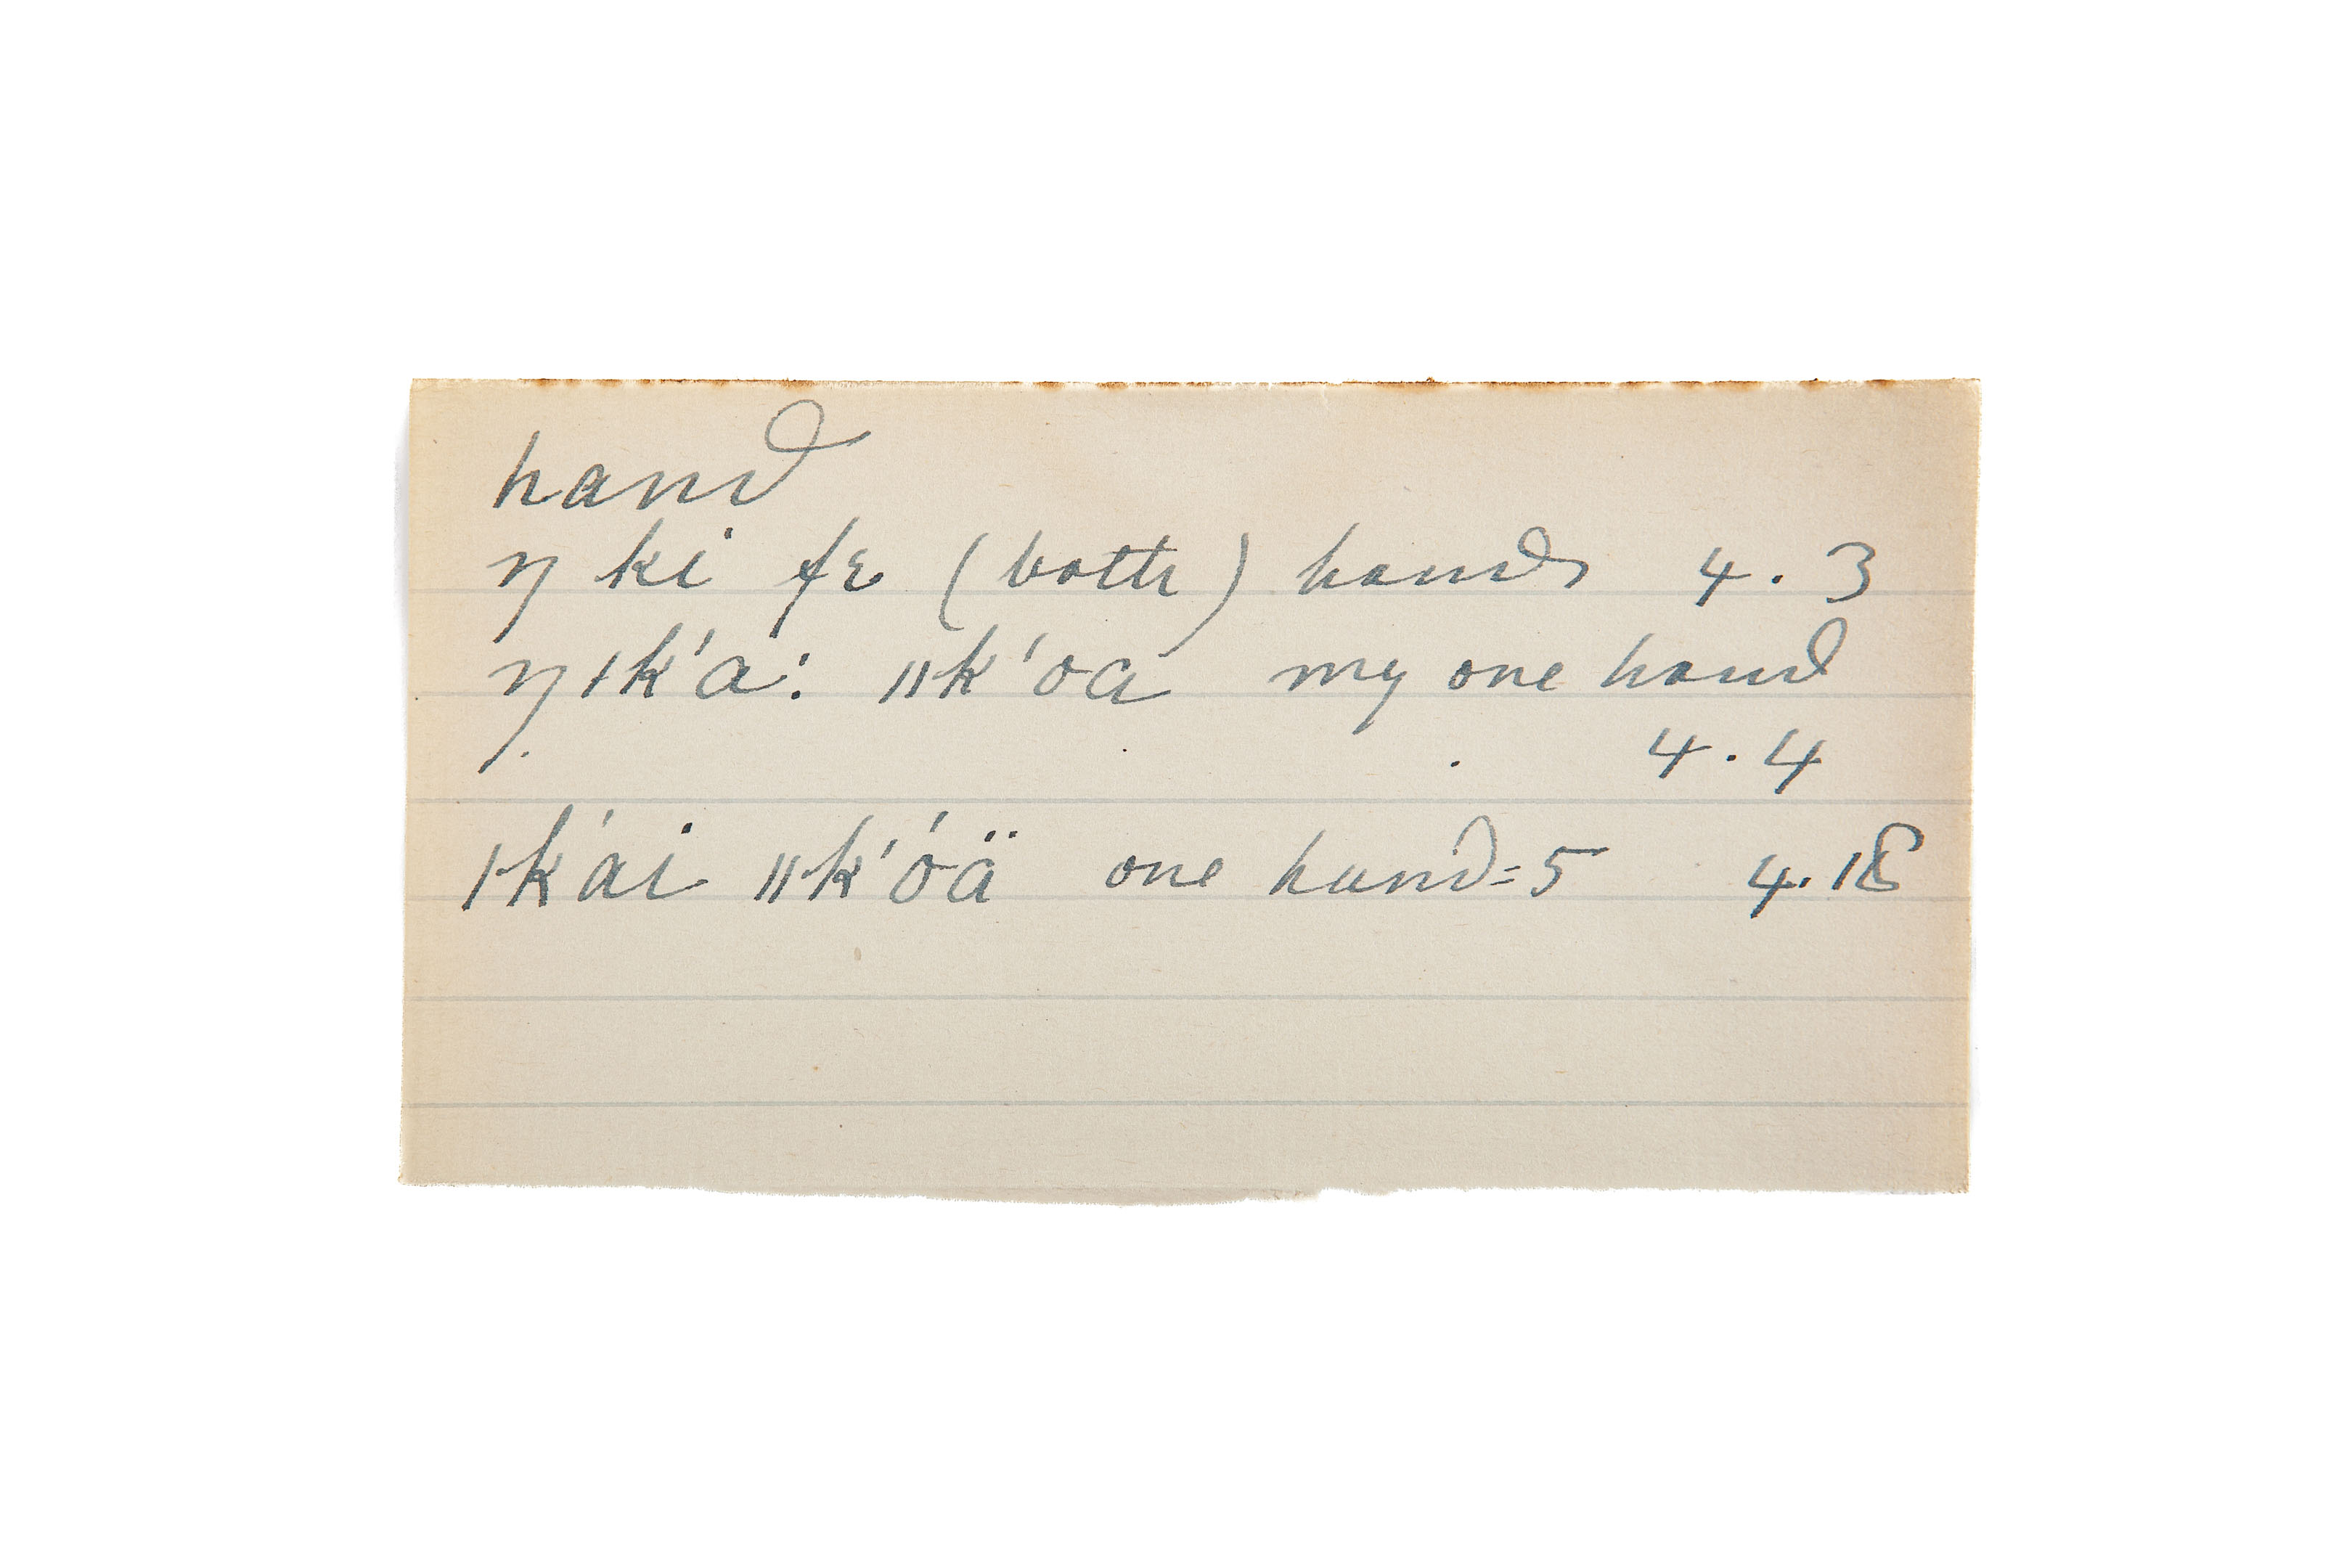 hand
ŋ ki fɛ (both) hands 4.3
ŋ ǀk'a: ǁk'oa my one hand
4.4
ǀk'ai ǁk'óä one hand=5 4.18